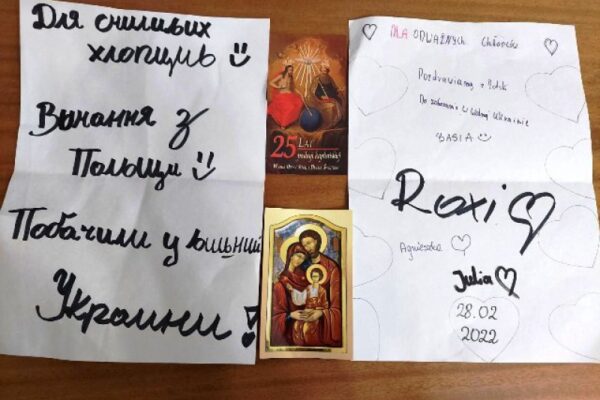 Для
хлопщив
Вынання з
Польщи
Побачили у
Украини!
25 LAT
DLA ODWAŻNYCH
Pozdrawiamy z Polski
Do zobaczenia w wolnej Ukrainie
BASIA
Roxi
Agnieszka
Julia
28.02
2022